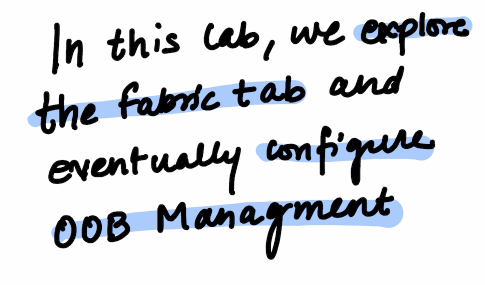 In this Lab, we explore
the fabric tab and
eventually configure
OOB Managment